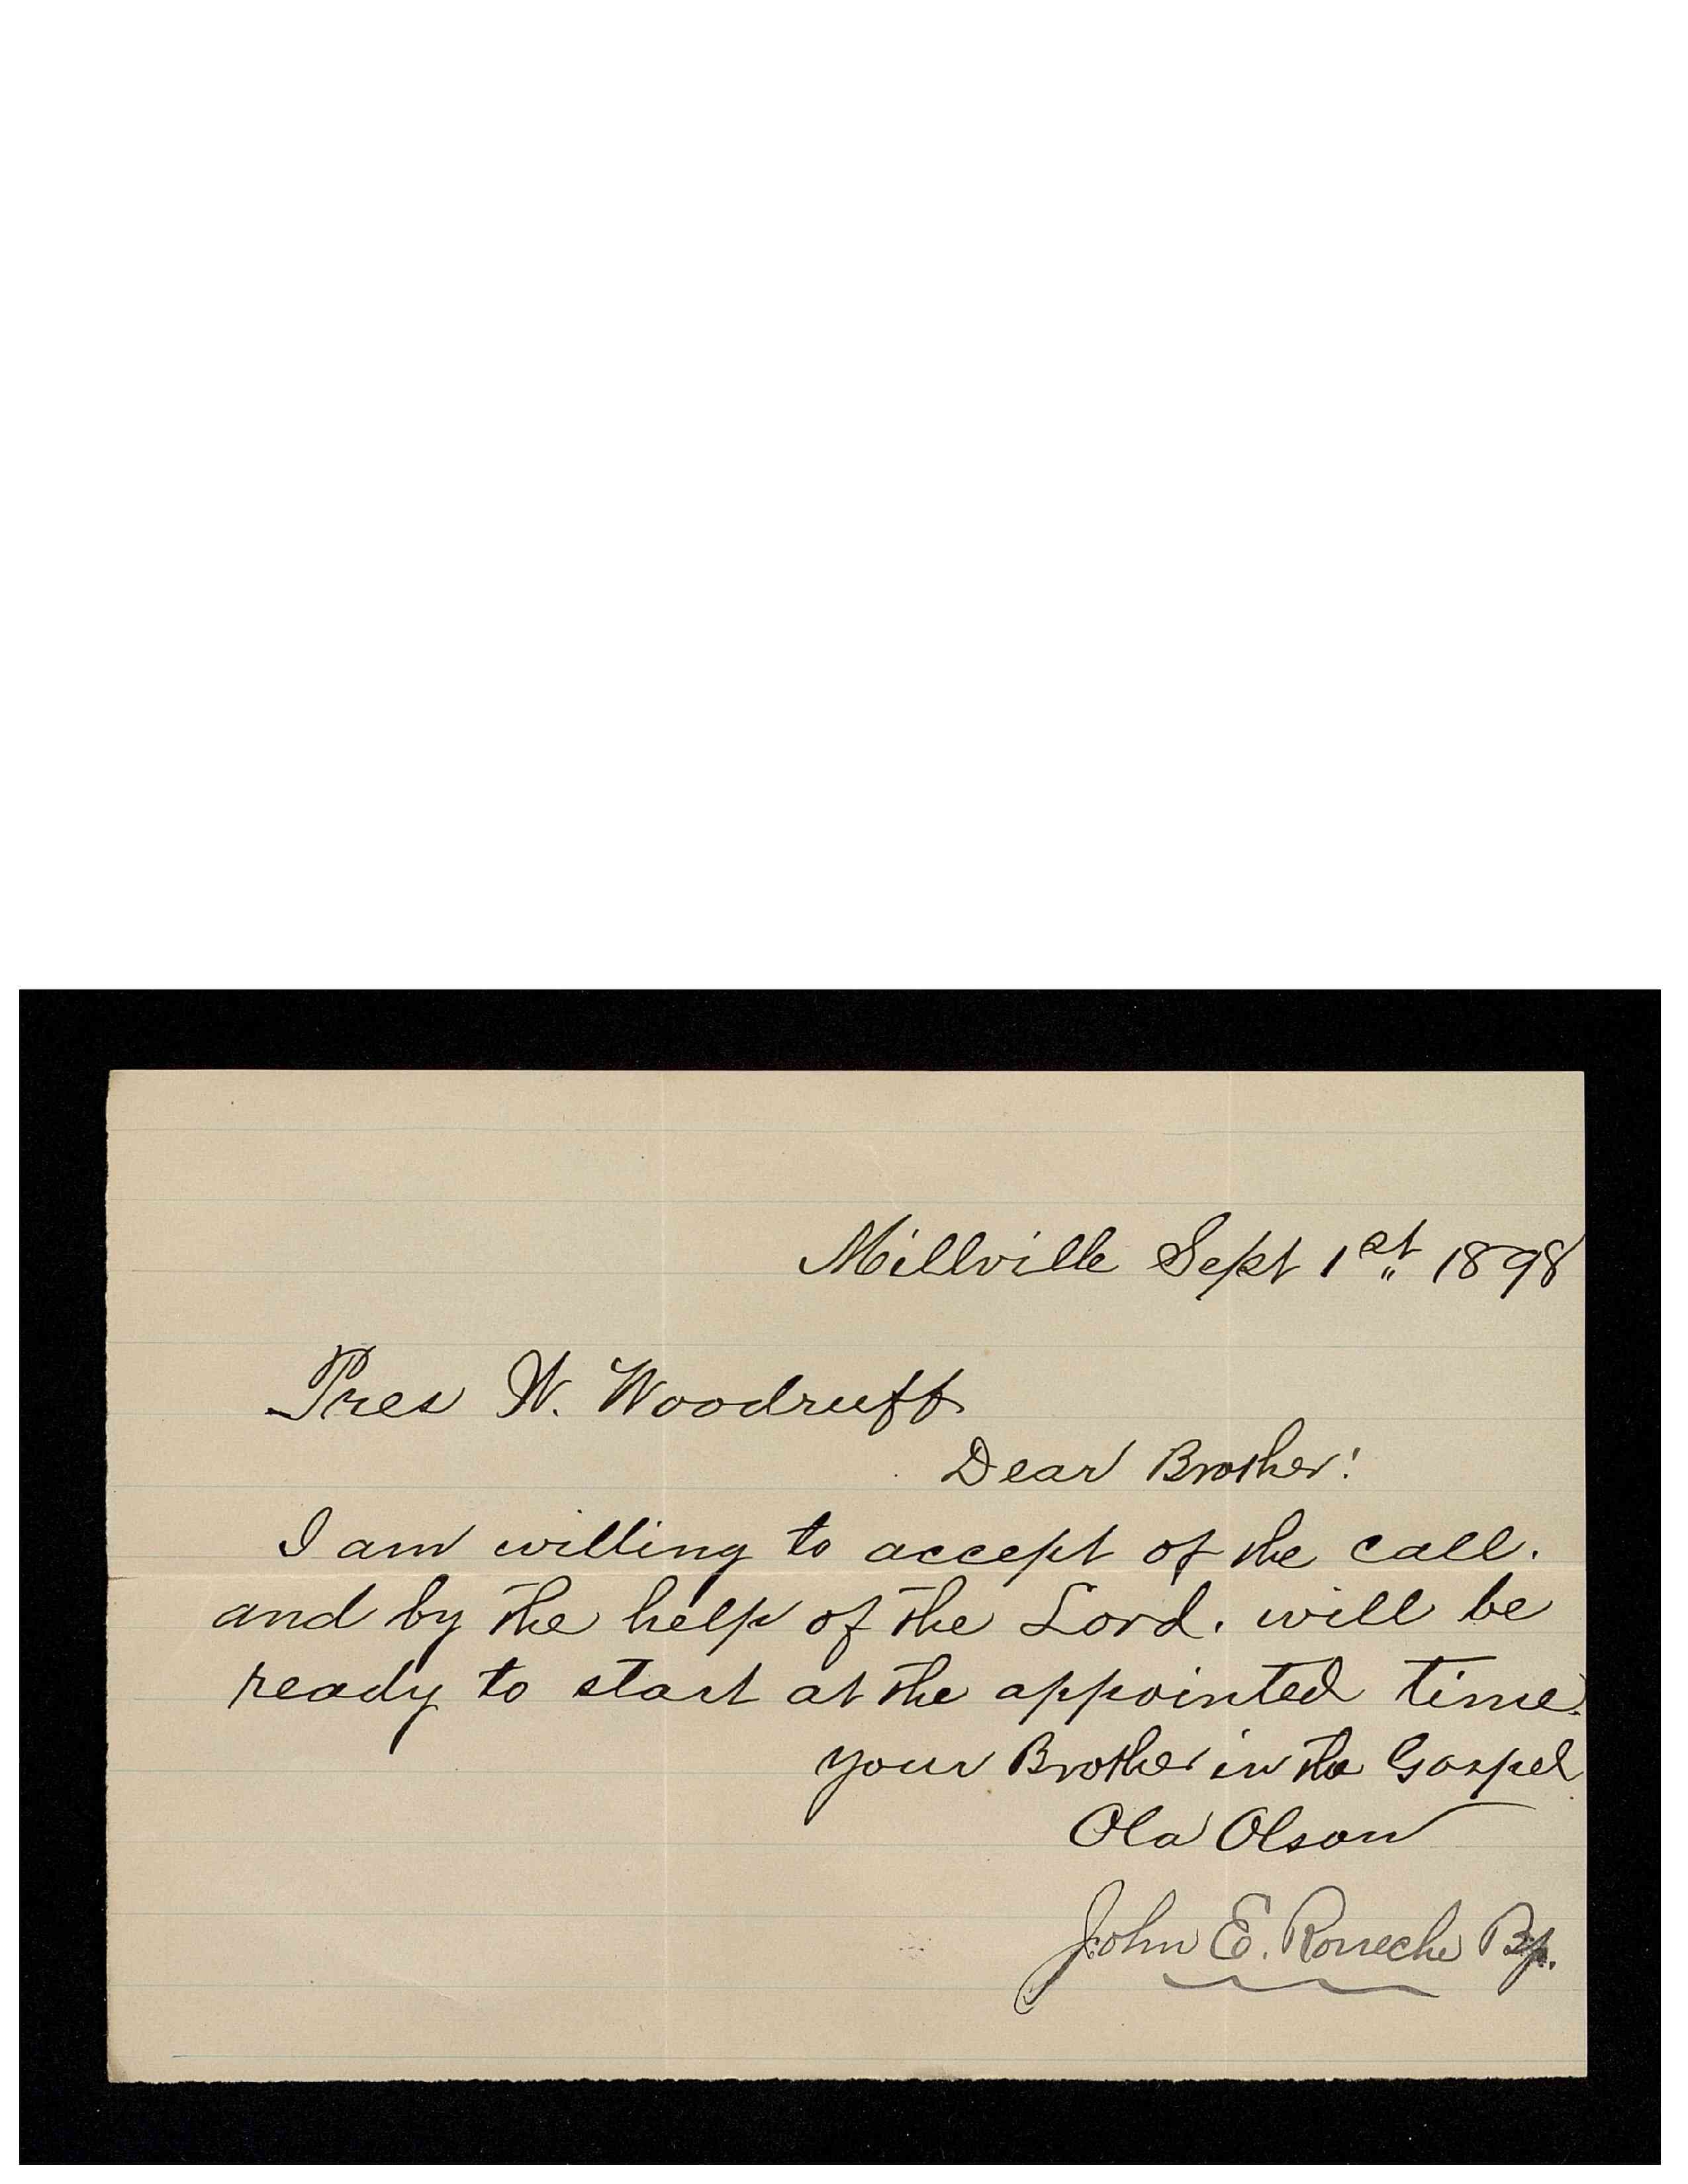 Millville Sept 1st 1898
Pres W. Woodruff
Dear Brother!
I am willing to accept of the call.
and by the help of the Lord. will be
ready to start at the appointed time.
your Brother in the Gospel
Ola Olson
John E. Roueche Bp.